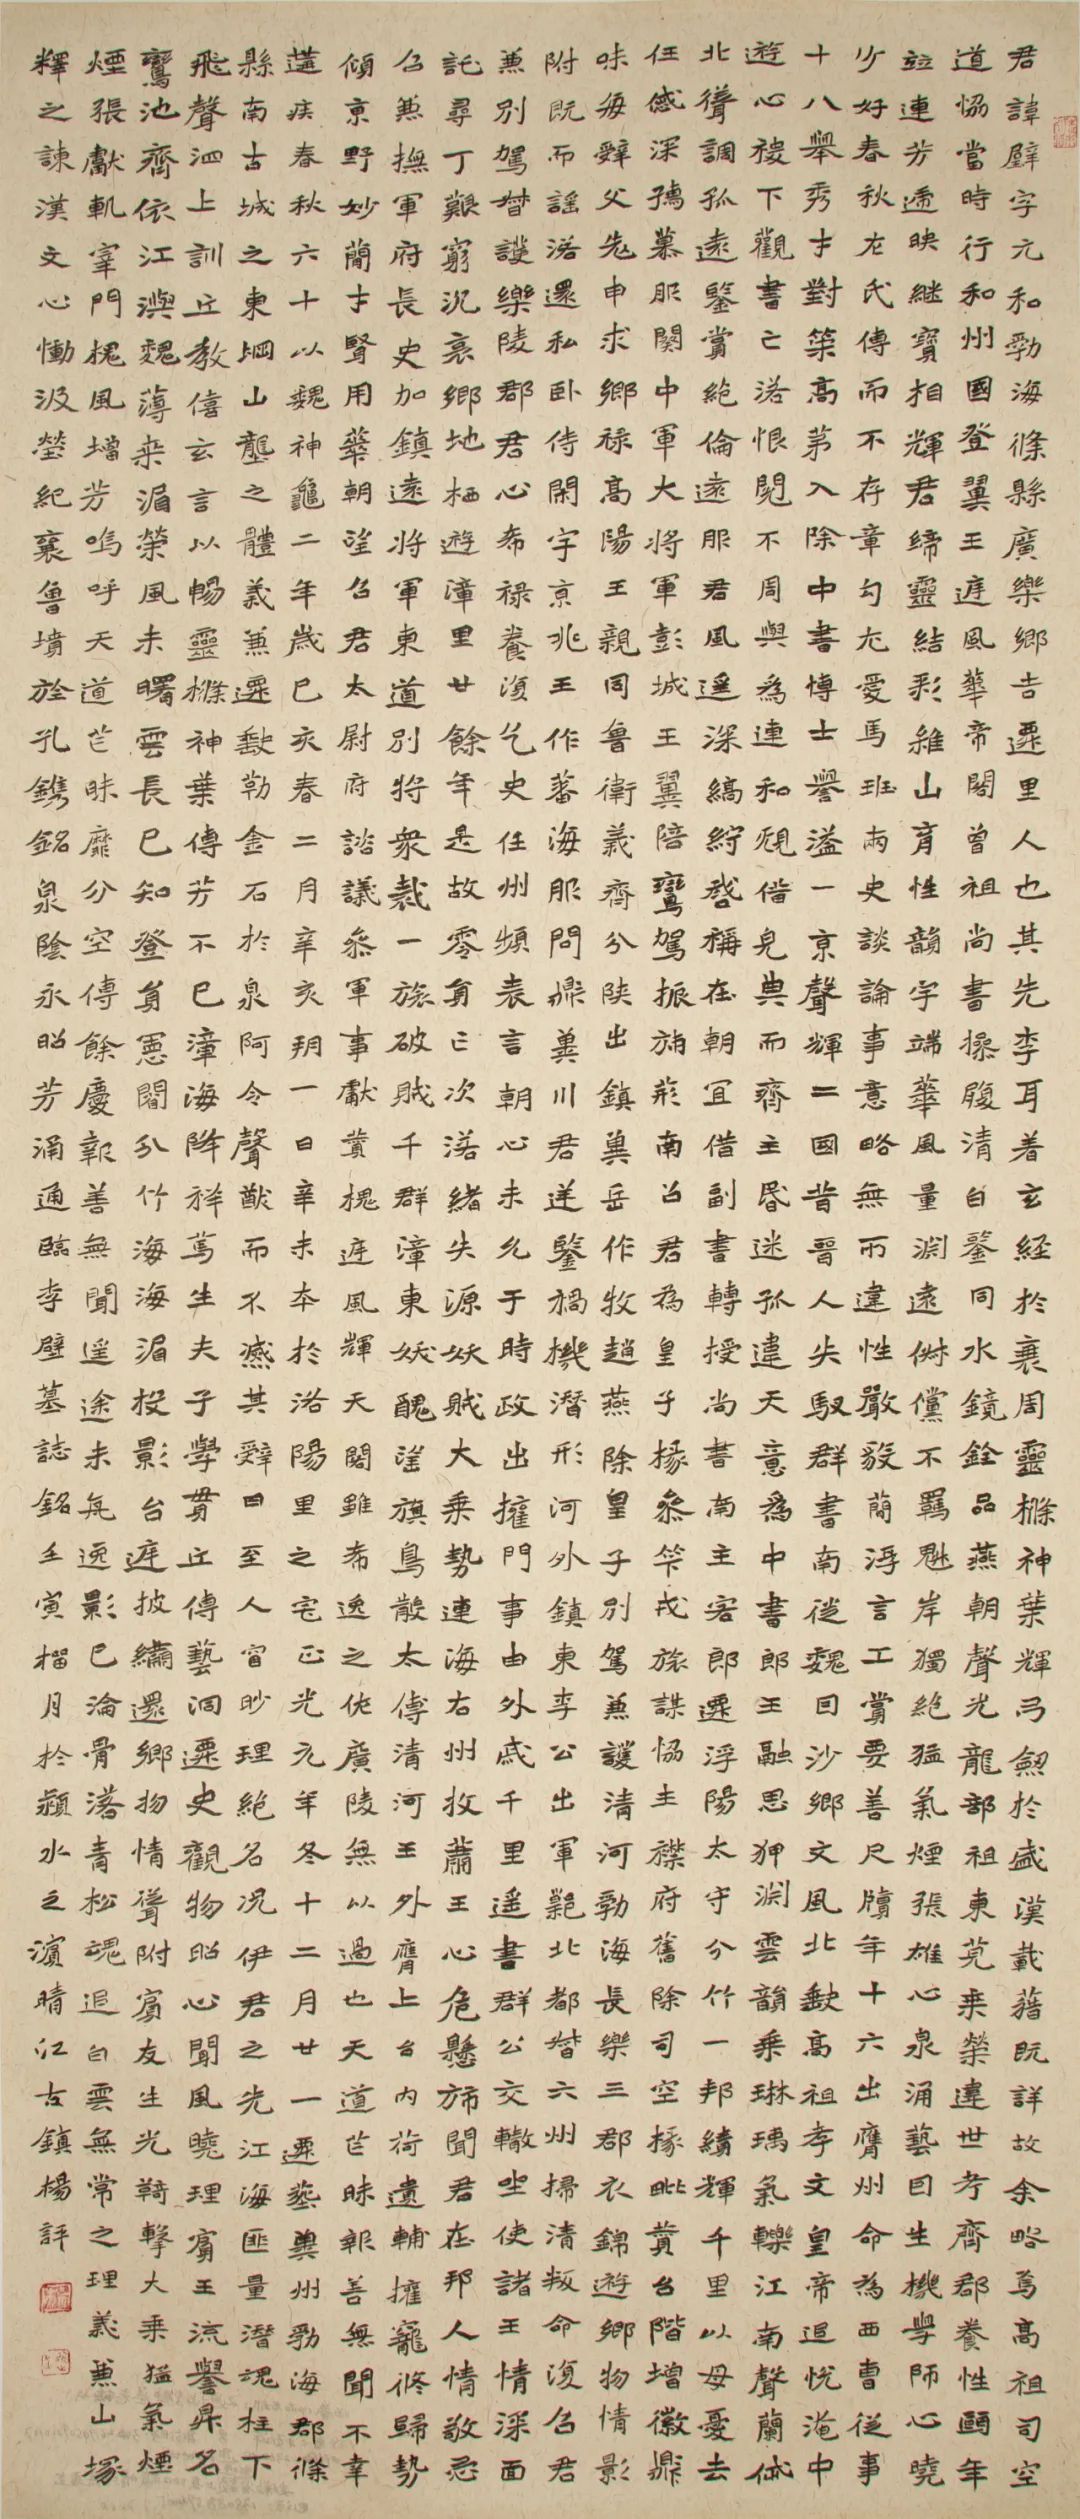 君諱璧字元和勃海條縣廣樂鄉吉遷里人也其先李耳著玄經於衰周靈櫢神葉輝弓劔於盛漢載藉既詳故余略焉高祖司空
道協當時行和州國登翼王庭風華帝閣曾祖尚書操履清白鑒同水鏡銓品燕朝聲光龍部祖東莞乘榮違世考齊郡養性頤年
竝連芳遞映継寶相輝君締靈結彩維山育性韻宇端華風量淵遠俶儻不羈魁岸獨絶猛氣煙張雄心泉涌藝因生機學師心曉
少好春秋左氏傳而不存章句尤愛馬班兩史談論事意略無所違性嚴毅簡浮言工賞要善尺牘年十六出膺州命為西曹從事
十八舉秀才對策高第入除中書博士譽溢一京聲輝二國昔晉人失馭群書南徙魏因沙鄉文風北缺高祖孝文皇帝追悅淹中
遊心稷下觀書亡落恨閱不周與為連和規借完典而齊主昏迷孤違天意為中書郎王融思狎淵雲韻乘琳瑀氣轢江南聲蘭岱
北聳調孤遠鑒賞絶倫遠服君風遥深縞紵啓稱在朝宜借副書轉授尚書南主客郎遷浮陽太守分竹一邦績輝千里以母憂去
任感深孺慕服闋中軍大將軍彭城王翼陪鸞駕振旆荊南召君為皇子掾參竿戎旅謀協主襟府舊除司空掾毗贊台階增徽鼎
味每辭父老申求鄉祿高陽王親同魯衛義齊分陝出鎮冀岳作牧趙燕除皇子別駕兼護清河勃海長樂三郡衣錦遊鄉物情影
附既而謡落還私卧侍閑宇京兆王作蕃海服問鼎冀川君逆鑒禍機潛形河外鎮東李公出軍艱北都督六州掃清叛命復召君
兼別駕督護樂陵郡君心希祿養復乞史任州頻表言朝心未允于時政出擁門事由外戚千里遥書群公交轍坐使諸王情深面
託尋丁艱窮沉哀鄉地栖遊漳里廿餘年是故零身亡次落緒失源妖賊大乘勢連海右州牧蕭王心危懸旆聞君在邦人情敬忌
召兼撫軍府長史加鎮遠將軍東道別將衆裁一旅破賊千群漳東妖醜望旗鳥散太傅清河王外膺上台內荷遺輔擁寵脩歸勢
傾京野妙簡才賢用華朝望召君太尉府諮議參軍事獻贊槐庭風輝天閣雖希逸之佐廣陵無以過也天道芒昧報善無聞不幸
遘疾春秋六十以魏神龜二年歲己亥春二月辛亥朔一日辛未卒於洛陽里之宅正光元年冬十二月廿一遷葬冀州勃海郡條
縣南古城之東堈山壟之體義兼遷缺勒金石於泉阿令聲猷而不滅其辭曰至人窅眇理絶名況伊君之光江海匪量潛魂柱下
飛聲泗上訓丘教僖玄言以暢靈櫢神葉傳芳不已漳海降祥篤生夫子學貫丘傳藝洞遷史觀物昭心聞風曉理賓王流譽鼎名
鸞池齊依江澳魏薄来湄榮風未曙雲長已知登身憲閣分竹海海湄投影台庭披繡還鄉物情聳附賓友生光騎擊大乘猛氣煙
煙張獻軌宰門槐風增芳嗚呼天道芒昧靡分空傳餘慶報善無聞遥途未旡逸影已淪骨落青松魂追白雲無常之理義兼山塚
釋之諫漢文心慟汲塋紀襄魯墳於孔鐫銘泉陰永昭芳涌通臨李璧墓誌銘壬寅榴月於潁水之濱晴江古鎮楊評